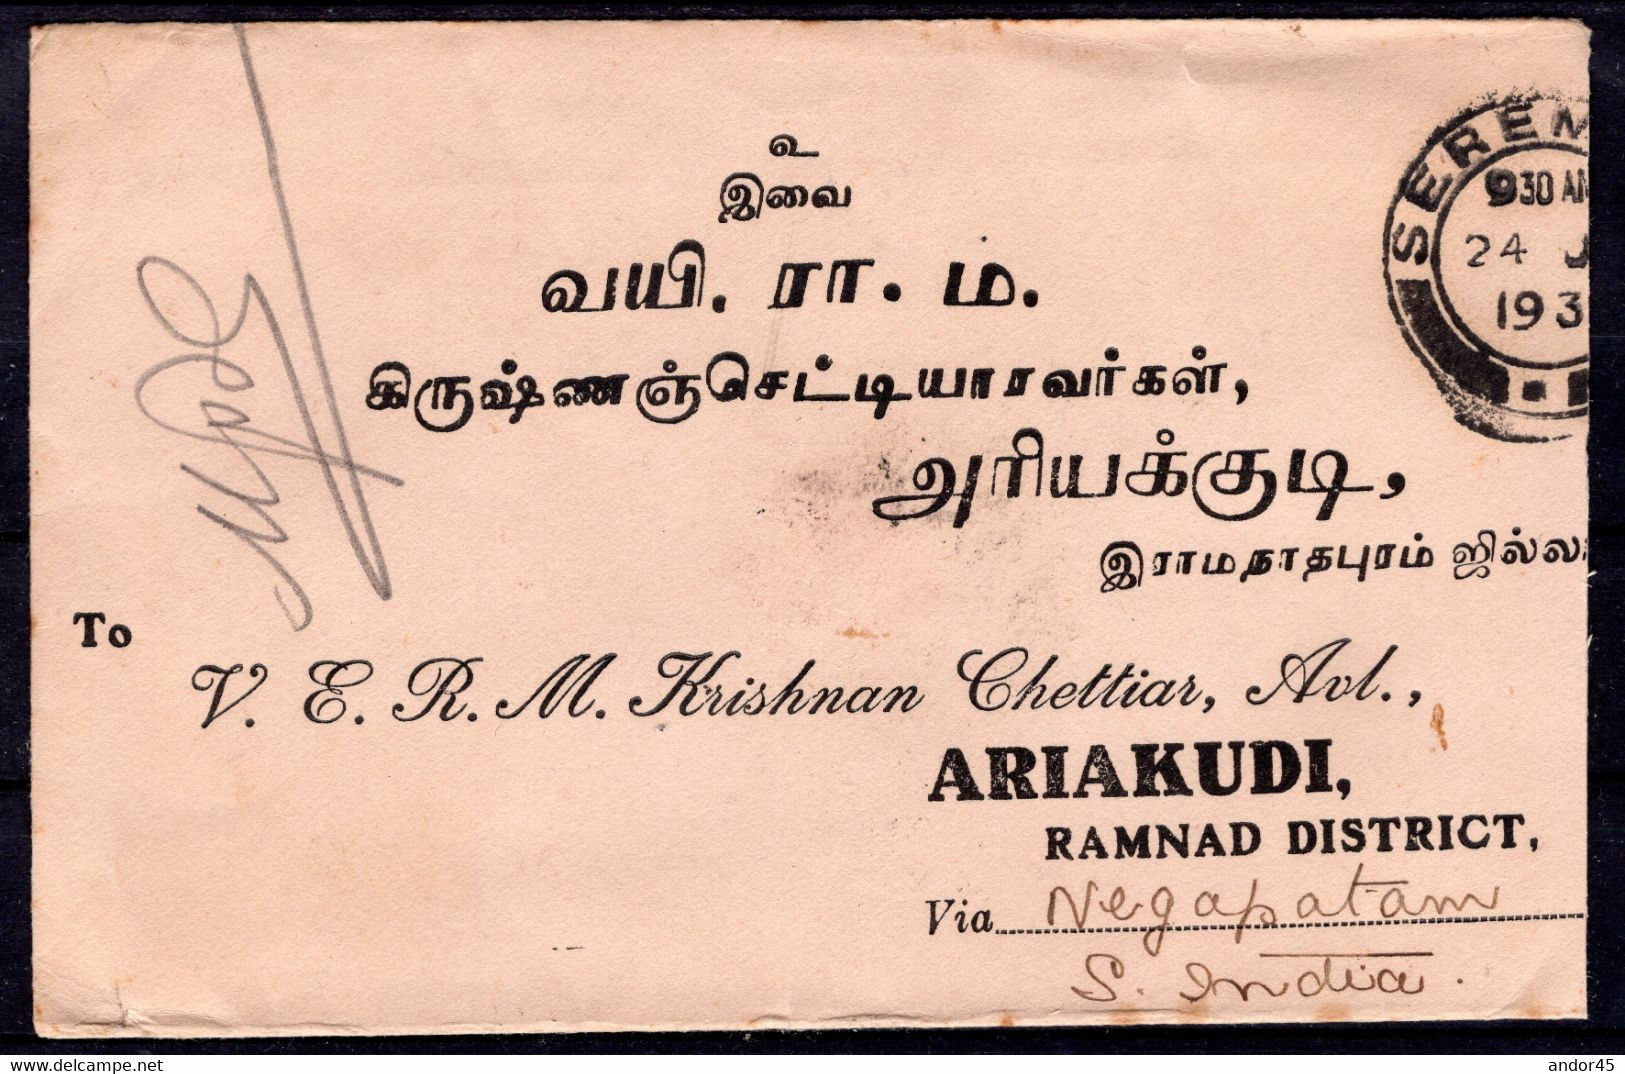 உ
இவை
வயி. ரா. ம.
கிருஷ்ணஞ்செட்டியாரவர்கள்,
அரியக்குடி,
இராமநாதபுரம் ஜில்லா
SEREM
930 AM
24 J
193
To
V. E. R. M. Krishnan Chettiar, Avl.,
ARIAKUDI,
RAMNAD DISTRICT,
Via Negapatam
S. India.
delcampe.net
andor45